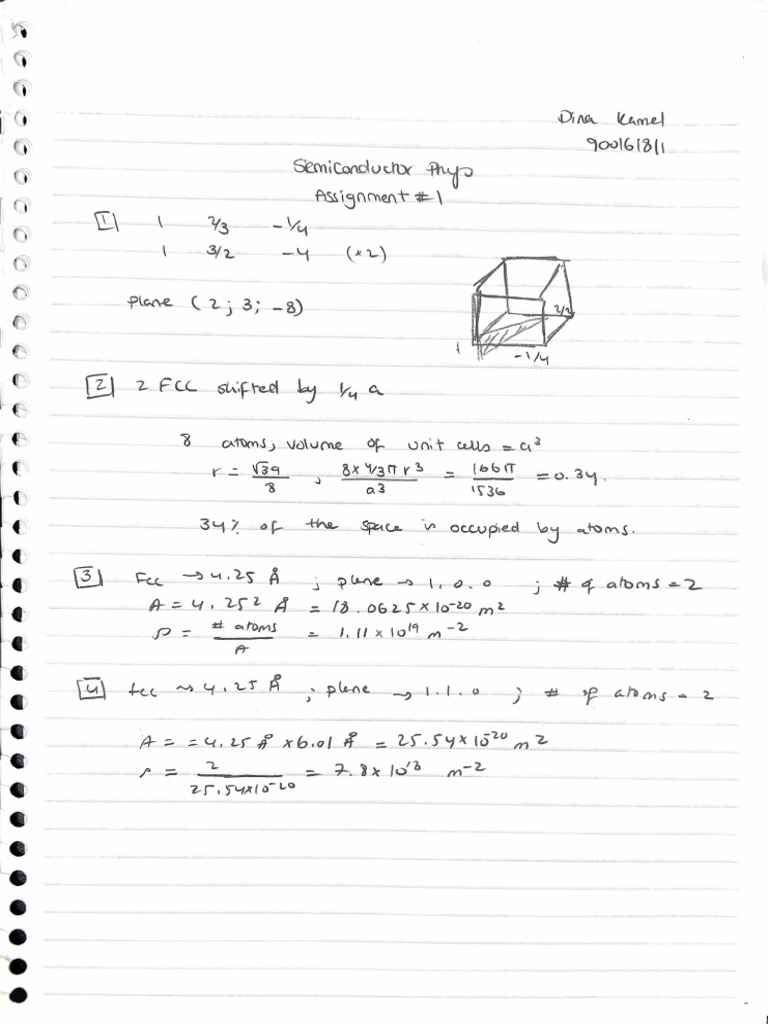 Dina Kamel
900161811
Semiconductor Phys
Assignment #1
1 1 2/3 -1/4
1 3/2 -4 (×2)
plane (2; 3; -8)
2/3
1
-1/4
2 2 FCC shifted by 1/4 a
8 atoms, volume of unit cells = a³
r = √3a/8 , 8×4/3πr³/a³ = 166π/1536 = 0.34.
34% of the space is occupied by atoms.
3 Fcc → 4.25 Å ; plane → 1.0.0 ; # of atoms = 2
A = 4.25² Å = 18.0625×10⁻²⁰ m²
ρ = # atoms/A = 1.11 × 10¹⁹ m⁻²
4 fcc → 4.25 Å ; plane → 1.1.0 ; # of atoms = 2
A = = 4.25 Å × 6.01 Å = 25.54×10⁻²⁰ m²
ρ = 2/25.54×10⁻²⁰ = 7.8 × 10¹⁸ m⁻²